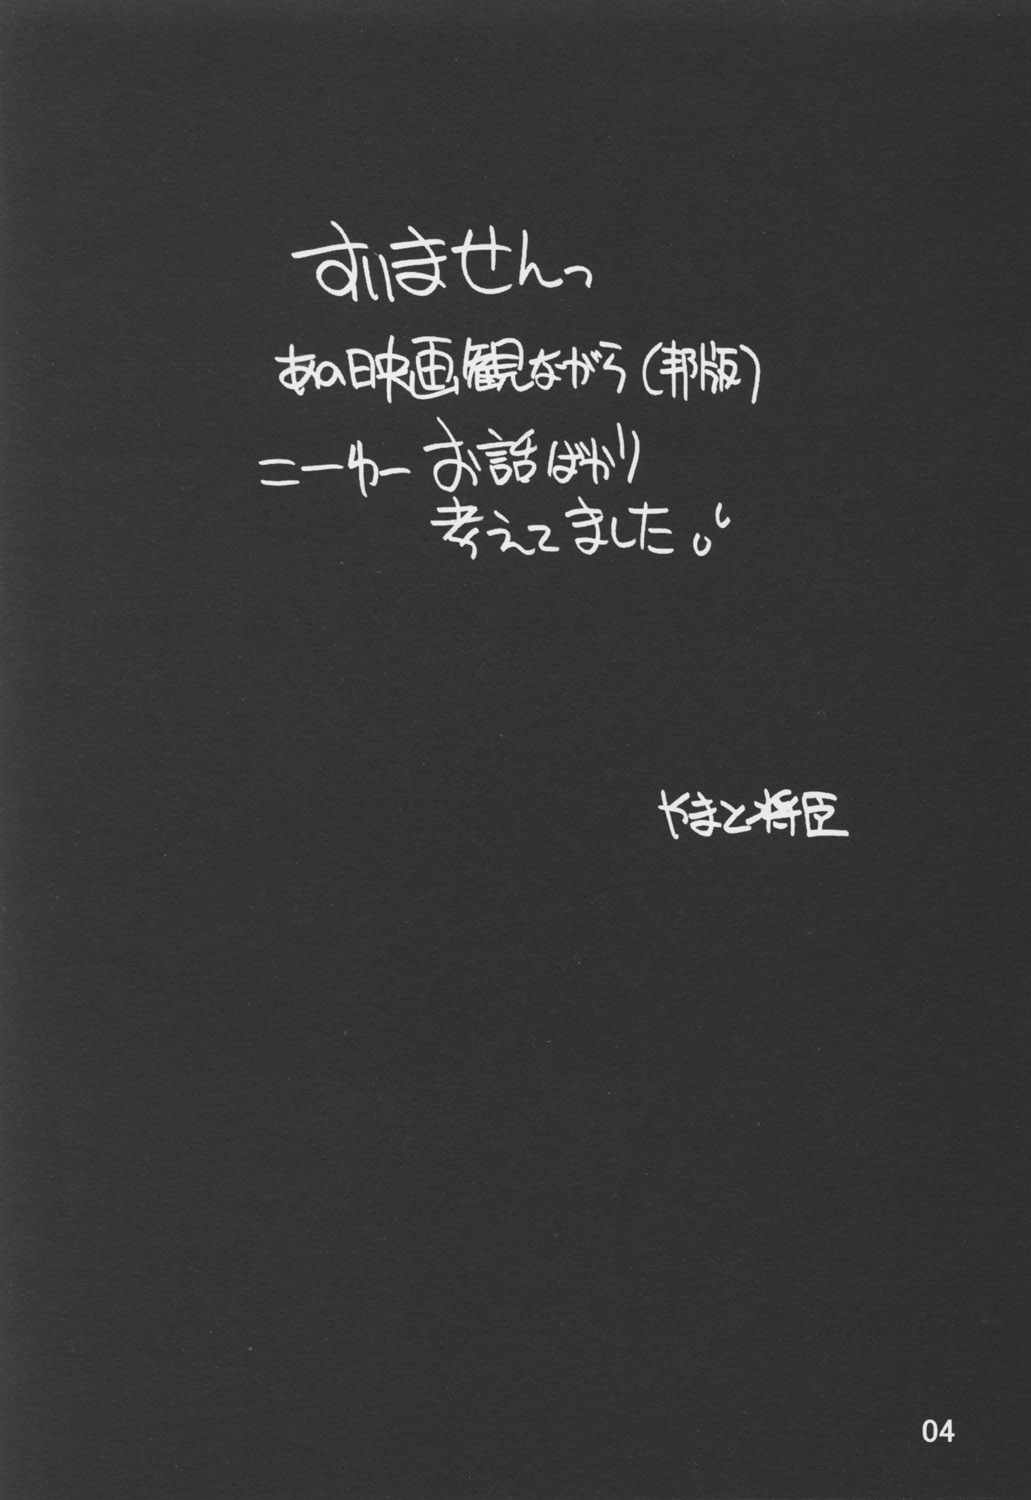 すいませんっ
あの映画観ながら(邦版)
こーゆー お話ばかり
考えてました。
やまと将臣
04